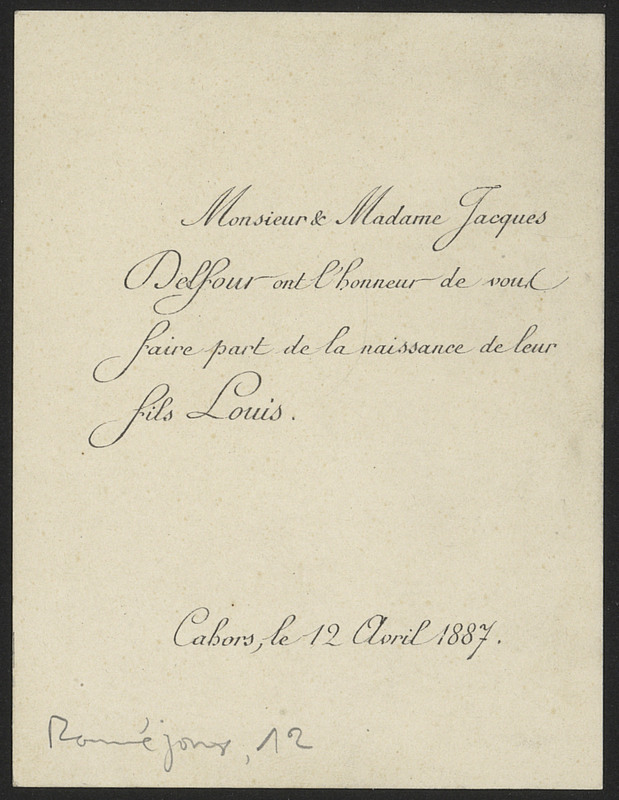 Monsieur & Madame Jacques
Delfour ont l'honneur de vous
faire part de la naissance de leur
fils Louis.
Cahors, le 12 Avril 1887.
, 12